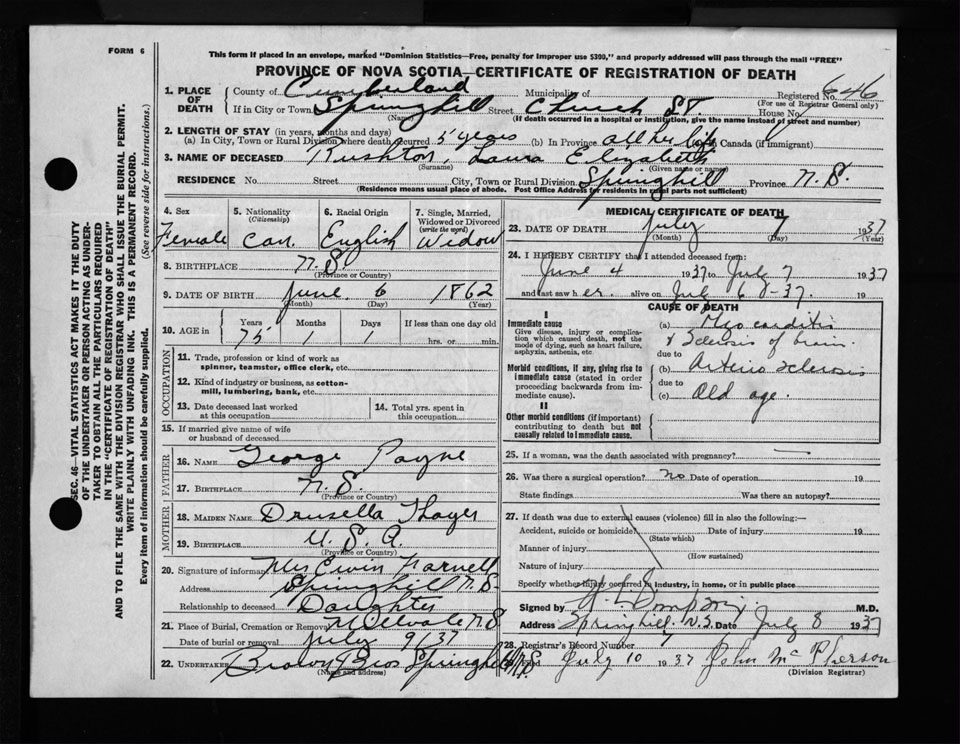 FORM 6
This form if placed in an envelope, marked "Dominion Statistics—Free, penalty for improper use $300," and properly addressed will pass through the mail "FREE"
PROVINCE OF NOVA SCOTIA—CERTIFICATE OF REGISTRATION OF DEATH
1. PLACE OF DEATH
County of Cumberland Municipality of Registered No. 646
(For use of Registrar General only)
If in City or Town Springhill Street Church St. House No
(Name) (If death occurred in a hospital or institution, give the name instead of street and number)
2. LENGTH OF STAY (in years, months and days)
(a) In City, Town or Rural Division where death occurred 5 years (b) In Province all her life Canada (if immigrant)
3. NAME OF DECEASED Rushton, Laura Elizabeth
(Surname) (Given name or names)
RESIDENCE No. Street City, Town or Rural Division Springhill Province N.S.
(Residence means usual place of abode. Post Office Address for residents in rural parts not sufficient)
4. Sex 5. Nationality 6. Racial Origin 7. Single, Married, Widowed or Divorced
(Citizenship) (write the word)
Female Can. English Widow
8. BIRTHPLACE N.S.
(Province or Country)
9. DATE OF BIRTH June 6 1862
(Month) (Day) (Year)
10. AGE in Years Months Days If less than one day old
75 1 1 hrs. or min.
OCCUPATION
11. Trade, profession or kind of work as spinner, teamster, office clerk, etc.
12. Kind of industry or business, as cotton-mill, lumbering, bank, etc.
13. Date deceased last worked at this occupation
14. Total yrs. spent in this occupation
15. If married give name of wife or husband of deceased
FATHER
16. NAME George Payne
17. BIRTHPLACE N.S.
(Province or Country)
MOTHER
18. MAIDEN NAME Drusella Thayer
19. BIRTHPLACE U.S.A.
(Province or Country)
20. Signature of informant Mrs Ervin Harnell
Address Springhill N.S.
Relationship to deceased Daughter
21. Place of Burial, Cremation or Removal Millvale N.S.
Date of burial or removal July 9/37
22. UNDERTAKER Brown Bros Springhill N.S.
(Name and address)
MEDICAL CERTIFICATE OF DEATH
23. DATE OF DEATH July 7 1937
(Month) (Day) (Year)
24. I HEREBY CERTIFY that I attended deceased from:
June 4 1937 to July 7 1937
and last saw her alive on July 6 - 37 19
CAUSE OF DEATH
I
Immediate cause
Give disease, injury or complication which caused death, not the mode of dying, such as heart failure, asphyxia, asthenia, etc.
(a) Myocarditis
& Sclerosis of brain
due to
Morbid conditions, if any, giving rise to immediate cause (stated in order proceeding backwards from immediate cause).
(b) Arterio sclerosis
due to
(c) Old age.
II
Other morbid conditions (if important) contributing to death but not causally related to immediate cause.
25. If a woman, was the death associated with pregnancy? —
26. Was there a surgical operation? no Date of operation 19
State findings Was there an autopsy?
27. If death was due to external causes (violence) fill in also the following:—
Accident, suicide or homicide? Date of injury 19
(State which)
Manner of injury
(How sustained)
Nature of injury
Specify whether injury occurred in industry, in home, or in public place
Signed by M.D.
Address Springhill. N.S. Date July 8 1937
28. Registrar's Record Number 7
Filed July 10 1937 John McPherson
(Division Registrar)
SEC. 46—VITAL STATISTICS ACT MAKES IT THE DUTY
OF THE UNDERTAKER OR PERSON ACTING AS UNDER-
TAKER TO OBTAIN ALL THE PARTICULARS REQUIRED
IN THE "CERTIFICATE OF REGISTRATION OF DEATH"
AND TO FILE THE SAME WITH THE DIVISION REGISTRAR WHO SHALL ISSUE THE BURIAL PERMIT.
WRITE PLAINLY WITH UNFADING INK. THIS IS A PERMANENT RECORD.
Every item of information should be carefully supplied. (See reverse side for instructions.)